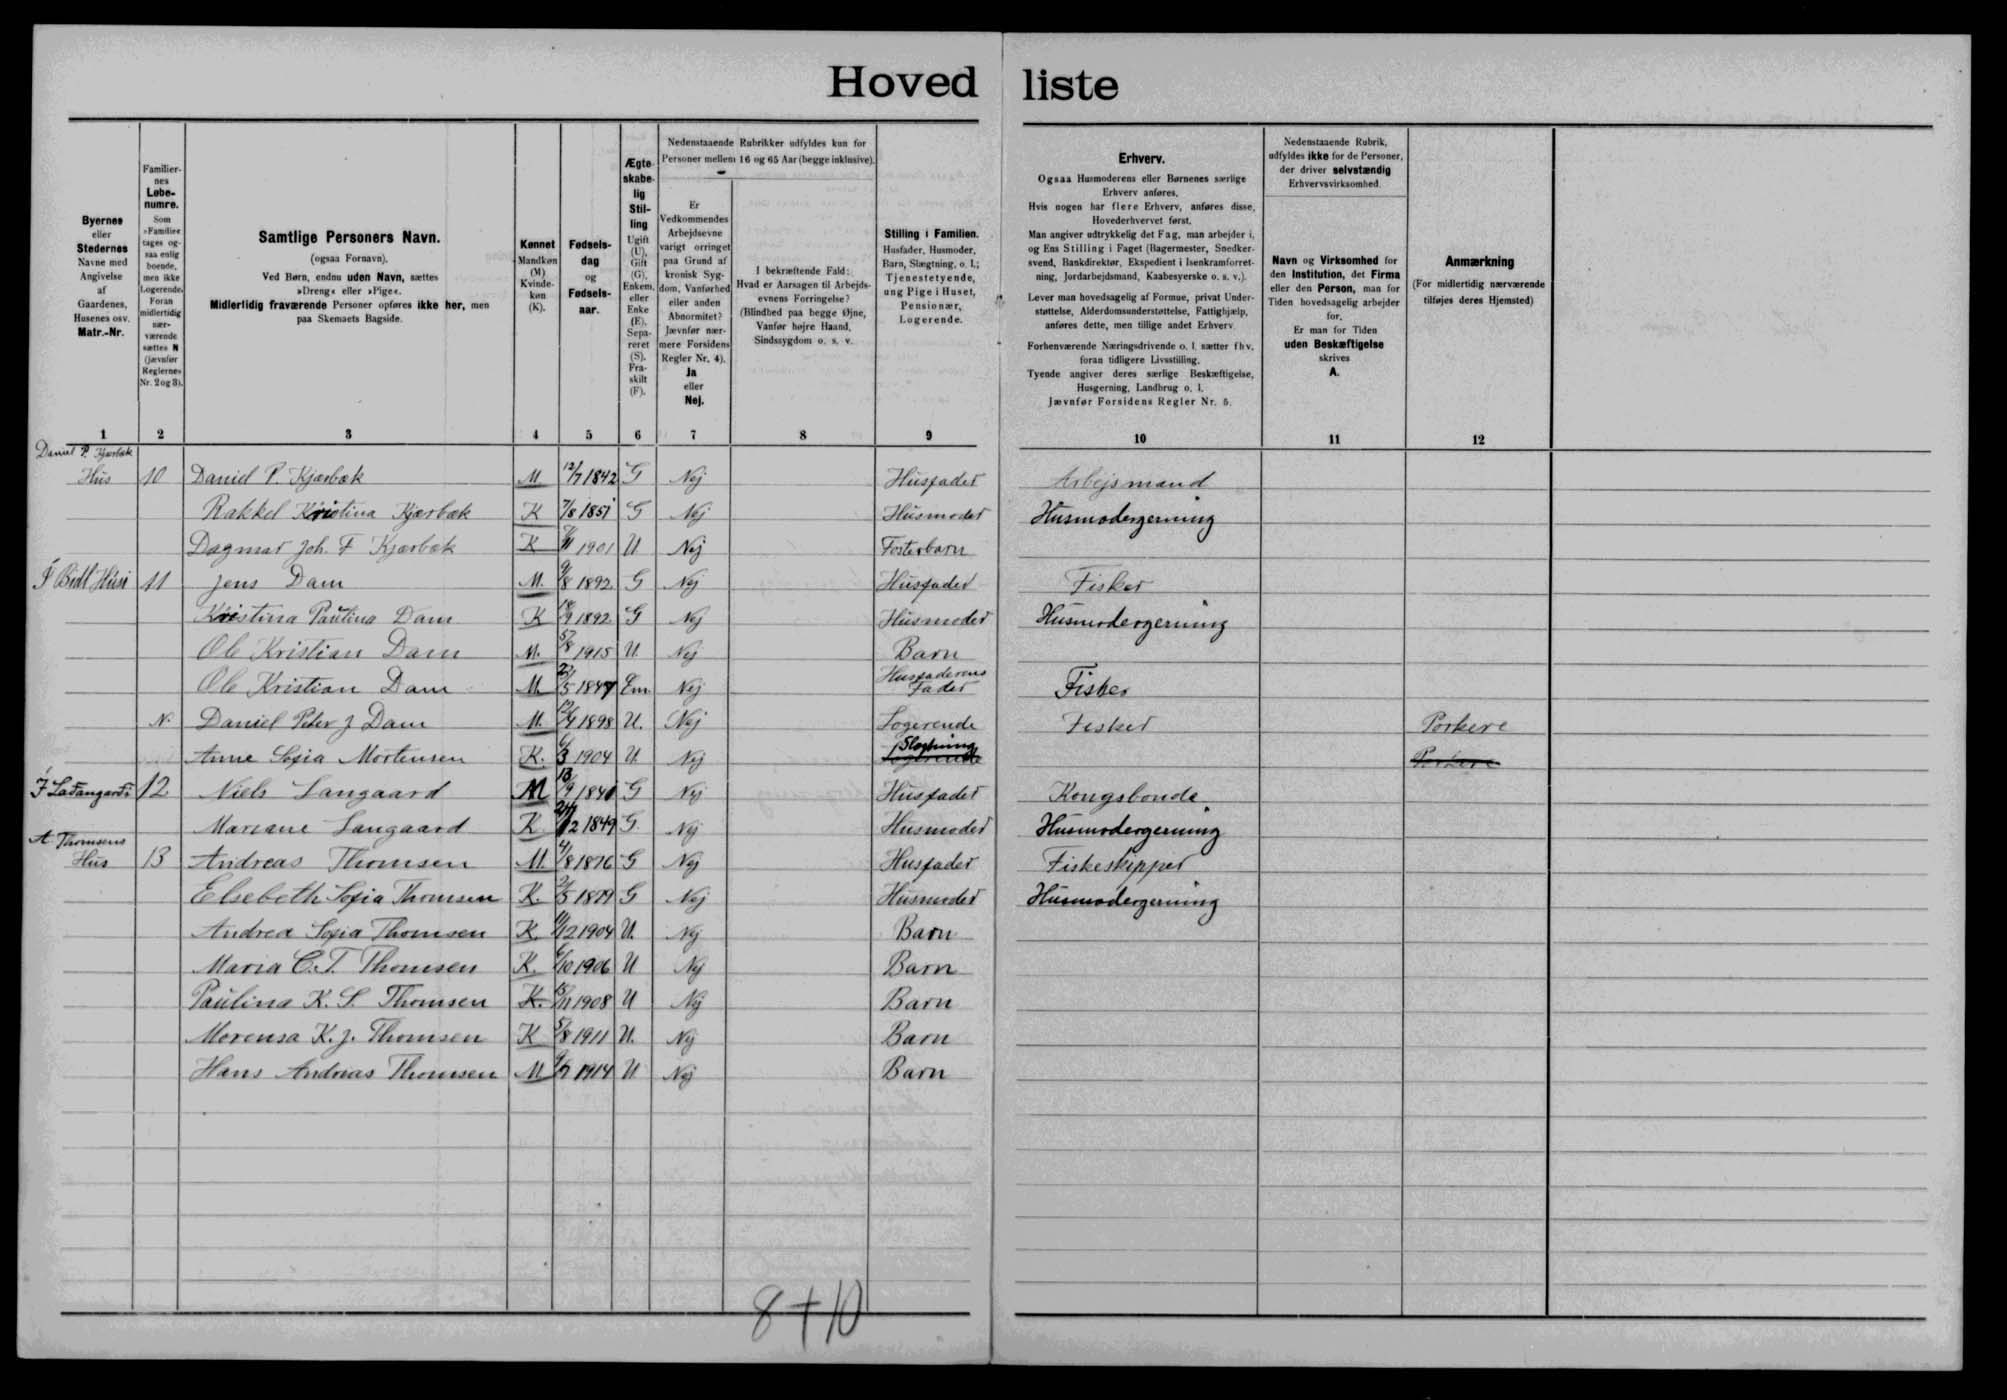 Hoved liste
Nedenstaaende Rubrikker udfyldes kun for
Personer mellem 16 og 65 Aar (begge inklusive).
Byernes
eller
Stedernes
Navne med
Angivelse
af
Gaardenes,
Husenes osv.
Matr.-Nr.
Familier-
nes
Løbe-
numre.
Som
»Familie«
tages og-
saa enlig
boende,
men ikke
Logerende.
Foran
midlertidig
nær-
værende
sættes N
(jævnfør
Reglernes
Nr. 2 og 3).
Samtlige Personers Navn.
(ogsaa Fornavn).
Ved Børn, endnu uden Navn, sættes
»Dreng« eller »Pige«.
Midlertidig fraværende Personer opføres ikke her, men
paa Skemaets Bagside.
Kønnet
Mandkøn
(M)
Kvinde-
køn
(K).
Fødsels-
dag
og
Fødsels-
aar.
Ægte-
skabe-
lig
Stil-
ling
Ugift
(U),
Gift
(G),
Enkem.
eller
Enke
(E),
Sepa-
reret
(S).
Fra-
skilt
(F).
Er
Vedkommendes
Arbejdsevne
varigt forringet
paa Grund af
kronisk Syg-
dom, Vanførhed
eller anden
Abnormitet?
Jævnfør nær-
mere Forsidens
Regler Nr. 4).
Ja
eller
Nej.
I bekræftende Fald:
Hvad er Aarsagen til Arbejds-
evnens Forringelse?
(Blindhed paa begge Øjne,
Vanfør højre Haand,
Sindssygdom o. s. v.
Stilling i Familien.
Husfader, Husmoder,
Barn, Slægtning, o. l.;
Tjenestetyende,
ung Pige i Huset,
Pensionær,
Logerende.
Erhverv.
Ogsaa Husmoderens eller Børnenes særlige
Erhverv anføres.
Hvis nogen har flere Erhverv, anføres disse,
Hovederhvervet først.
Man angiver udtrykkelig det Fag, man arbejder i,
og Ens Stilling i Faget (Bagermester, Snedker-
svend, Bankdirektør, Ekspedient i Isenkramforret-
ning, Jordarbejdsmand, Kaabesyerske o. s. v.).
Lever man hovedsagelig af Formue, privat Under-
støttelse, Alderdomsunderstøttelse, Fattighjælp,
anføres dette, men tillige andet Erhverv.
Forhenværende Næringsdrivende o. l. sætter fhv.
foran tidligere Livsstilling.
Tyende angiver deres særlige Beskæftigelse,
Husgerning, Landbrug o. l.
Jævnfør Forsidens Regler Nr. 5.
Nedenstaaende Rubrik,
udfyldes ikke for de Personer,
der driver selvstændig
Erhvervsvirksomhed.
Navn og Virksomhed for
den Institution, det Firma
eller den Person, man for
Tiden hovedsagelig arbejder
for.
Er man for Tiden
uden Beskæftigelse
skrives
A.
Anmærkning
(For midlertidig nærværende
tilføjes deres Hjemsted)
1 2 3 4 5 6 7 8 9 10 11 12
Daniel P. Kjærbæk
Hus 10 Daniel P. Kjærbæk M 12/7 1842 G Nej Husfader Arbejsmand
Rakkel Kristina Kjærbæk K 7/8 1851 G Nej Husmoder Husmodergerning
Dagmar Joh. F Kjærbæk K 1901 U Nej Fosterbarn
11 Jens Dam M. 9/8 1892 G Nej Husfader Fisker
Kristina Paulina Dam K 1892 G Nej Husmoder Husmodergerning
Ole Kristian Dam M. 5/8 1915 U. Nej Barn
Husfaderens
Ole Kristian Dam M. Em. Nej Fader Fisker
N. Daniel Peter J Dam M. 1898 U. Nej Logerende Fisker Porkere
Slægtning
Anne Sofia Mortensen K. 6/3 1904 U. Nej Logerende Porkere
12 Niels Langaard M G Nej Husfader Kongsbonde
Mariane Langaard K 1849 G. Nej Husmoder Husmodergerning
A Thomsens
Hus 13 Andreas Thomsen M. 4/8 1876 G Nej Husfader Fiskeskipper
Elsebeth Sofia Thomsen K. 2/5 1879 G Nej Husmoder Husmodergerning
Andrea Sofia Thomsen K. 11/12 1904 U. Nej Barn
Maria C. T. Thomsen K. 6/10 1906 U Nej Barn
Paulina K. S. Thomsen K. 1908 U Nej Barn
Morensa K. J. Thomsen K 5/8 1911 U. Nej Barn
Hans Andrias Thomsen M 1914 U Nej Barn
8+10